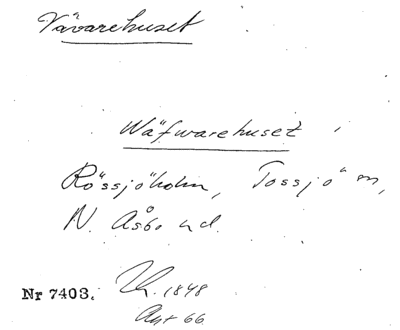 Vävarehuset
Wäfwarehuset,
Rössjöholm, Tossjö sn,
N. Åsbo hd.
Nr 7403. 1848
Akt 66